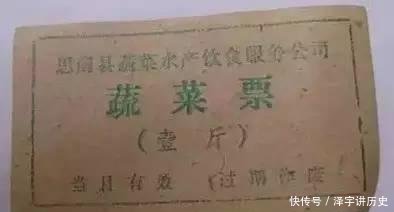 思南县蔬菜水产饮食服务公司
蔬菜票
（壹斤）
当日有效 （过期作废
快传号／泽宇讲历史